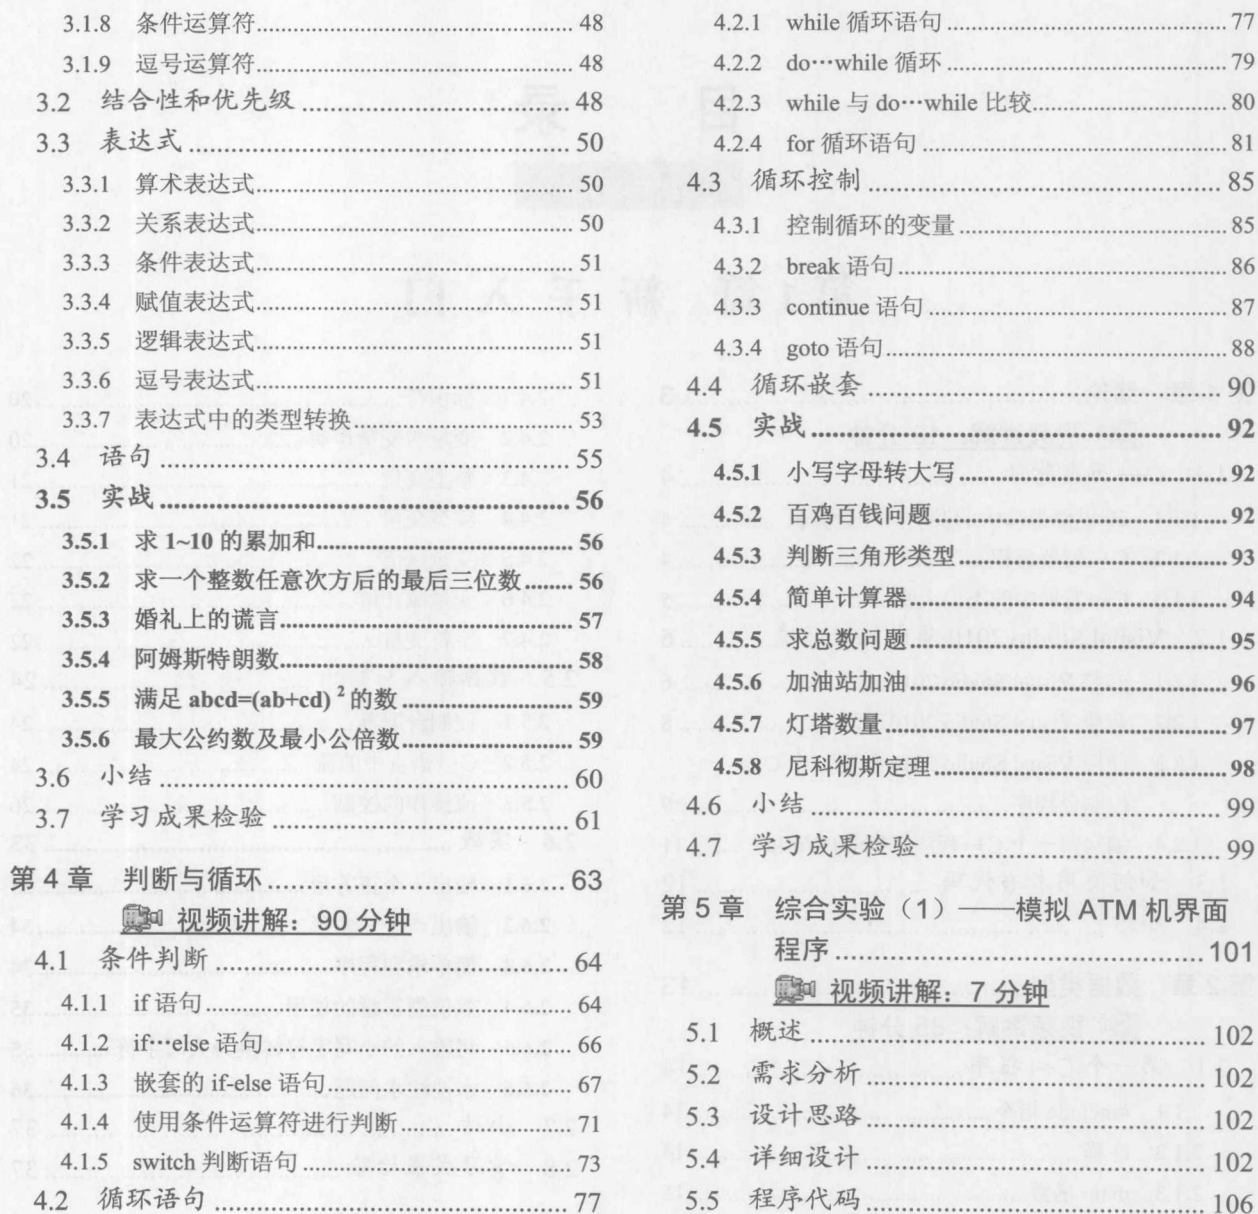 3.1.8 条件运算符 48
3.1.9 逗号运算符 48
3.2 结合性和优先级 48
3.3 表达式 50
3.3.1 算术表达式 50
3.3.2 关系表达式 50
3.3.3 条件表达式 51
3.3.4 赋值表达式 51
3.3.5 逻辑表达式 51
3.3.6 逗号表达式 51
3.3.7 表达式中的类型转换 53
3.4 语句 55
3.5 实战 56
3.5.1 求 1~10 的累加和 56
3.5.2 求一个整数任意次方后的最后三位数 56
3.5.3 婚礼上的谎言 57
3.5.4 阿姆斯特朗数 58
3.5.5 满足 abcd=(ab+cd)² 的数 59
3.5.6 最大公约数及最小公倍数 59
3.6 小结 60
3.7 学习成果检验 61
第 4 章 判断与循环 63
视频讲解：90 分钟
4.1 条件判断 64
4.1.1 if 语句 64
4.1.2 if…else 语句 66
4.1.3 嵌套的 if-else 语句 67
4.1.4 使用条件运算符进行判断 71
4.1.5 switch 判断语句 73
4.2 循环语句 77
4.2.1 while 循环语句 77
4.2.2 do…while 循环 79
4.2.3 while 与 do…while 比较 80
4.2.4 for 循环语句 81
4.3 循环控制 85
4.3.1 控制循环的变量 85
4.3.2 break 语句 86
4.3.3 continue 语句 87
4.3.4 goto 语句 88
4.4 循环嵌套 90
4.5 实战 92
4.5.1 小写字母转大写 92
4.5.2 百鸡百钱问题 92
4.5.3 判断三角形类型 93
4.5.4 简单计算器 94
4.5.5 求总数问题 95
4.5.6 加油站加油 96
4.5.7 灯塔数量 97
4.5.8 尼科彻斯定理 98
4.6 小结 99
4.7 学习成果检验 99
第 5 章 综合实验（1）——模拟 ATM 机界面
程序 101
视频讲解：7 分钟
5.1 概述 102
5.2 需求分析 102
5.3 设计思路 102
5.4 详细设计 102
5.5 程序代码 106